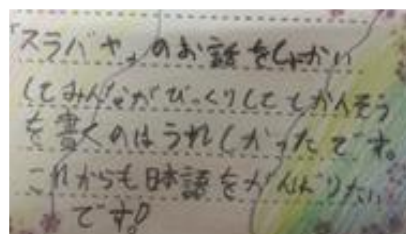 「スラバヤ」のお話をしょかい
してみんながびっくりしててかんそう
を書くのはうれしかったです。
これからも日本語をがんばりたい
です!